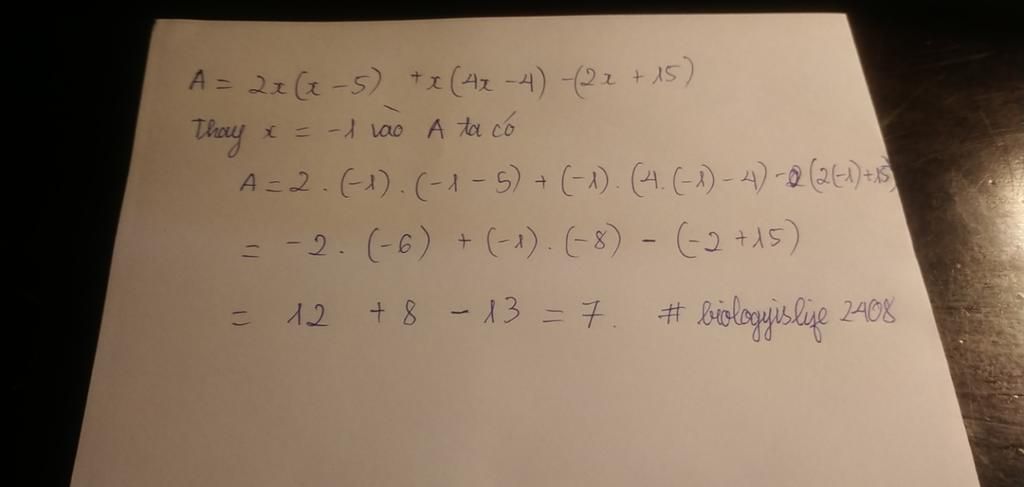 A = 2x(x - 5) + x(4x - 4) - (2x + 15)
Thay x = -1 vào A ta có
A = 2 . (-1) . (-1 - 5) + (-1) . (4. (-1) - 4) - (2(-1) + 15)
= -2 . (-6) + (-1) . (-8) - (-2 + 15)
= 12 + 8 - 13 = 7. # biologyislife 2408